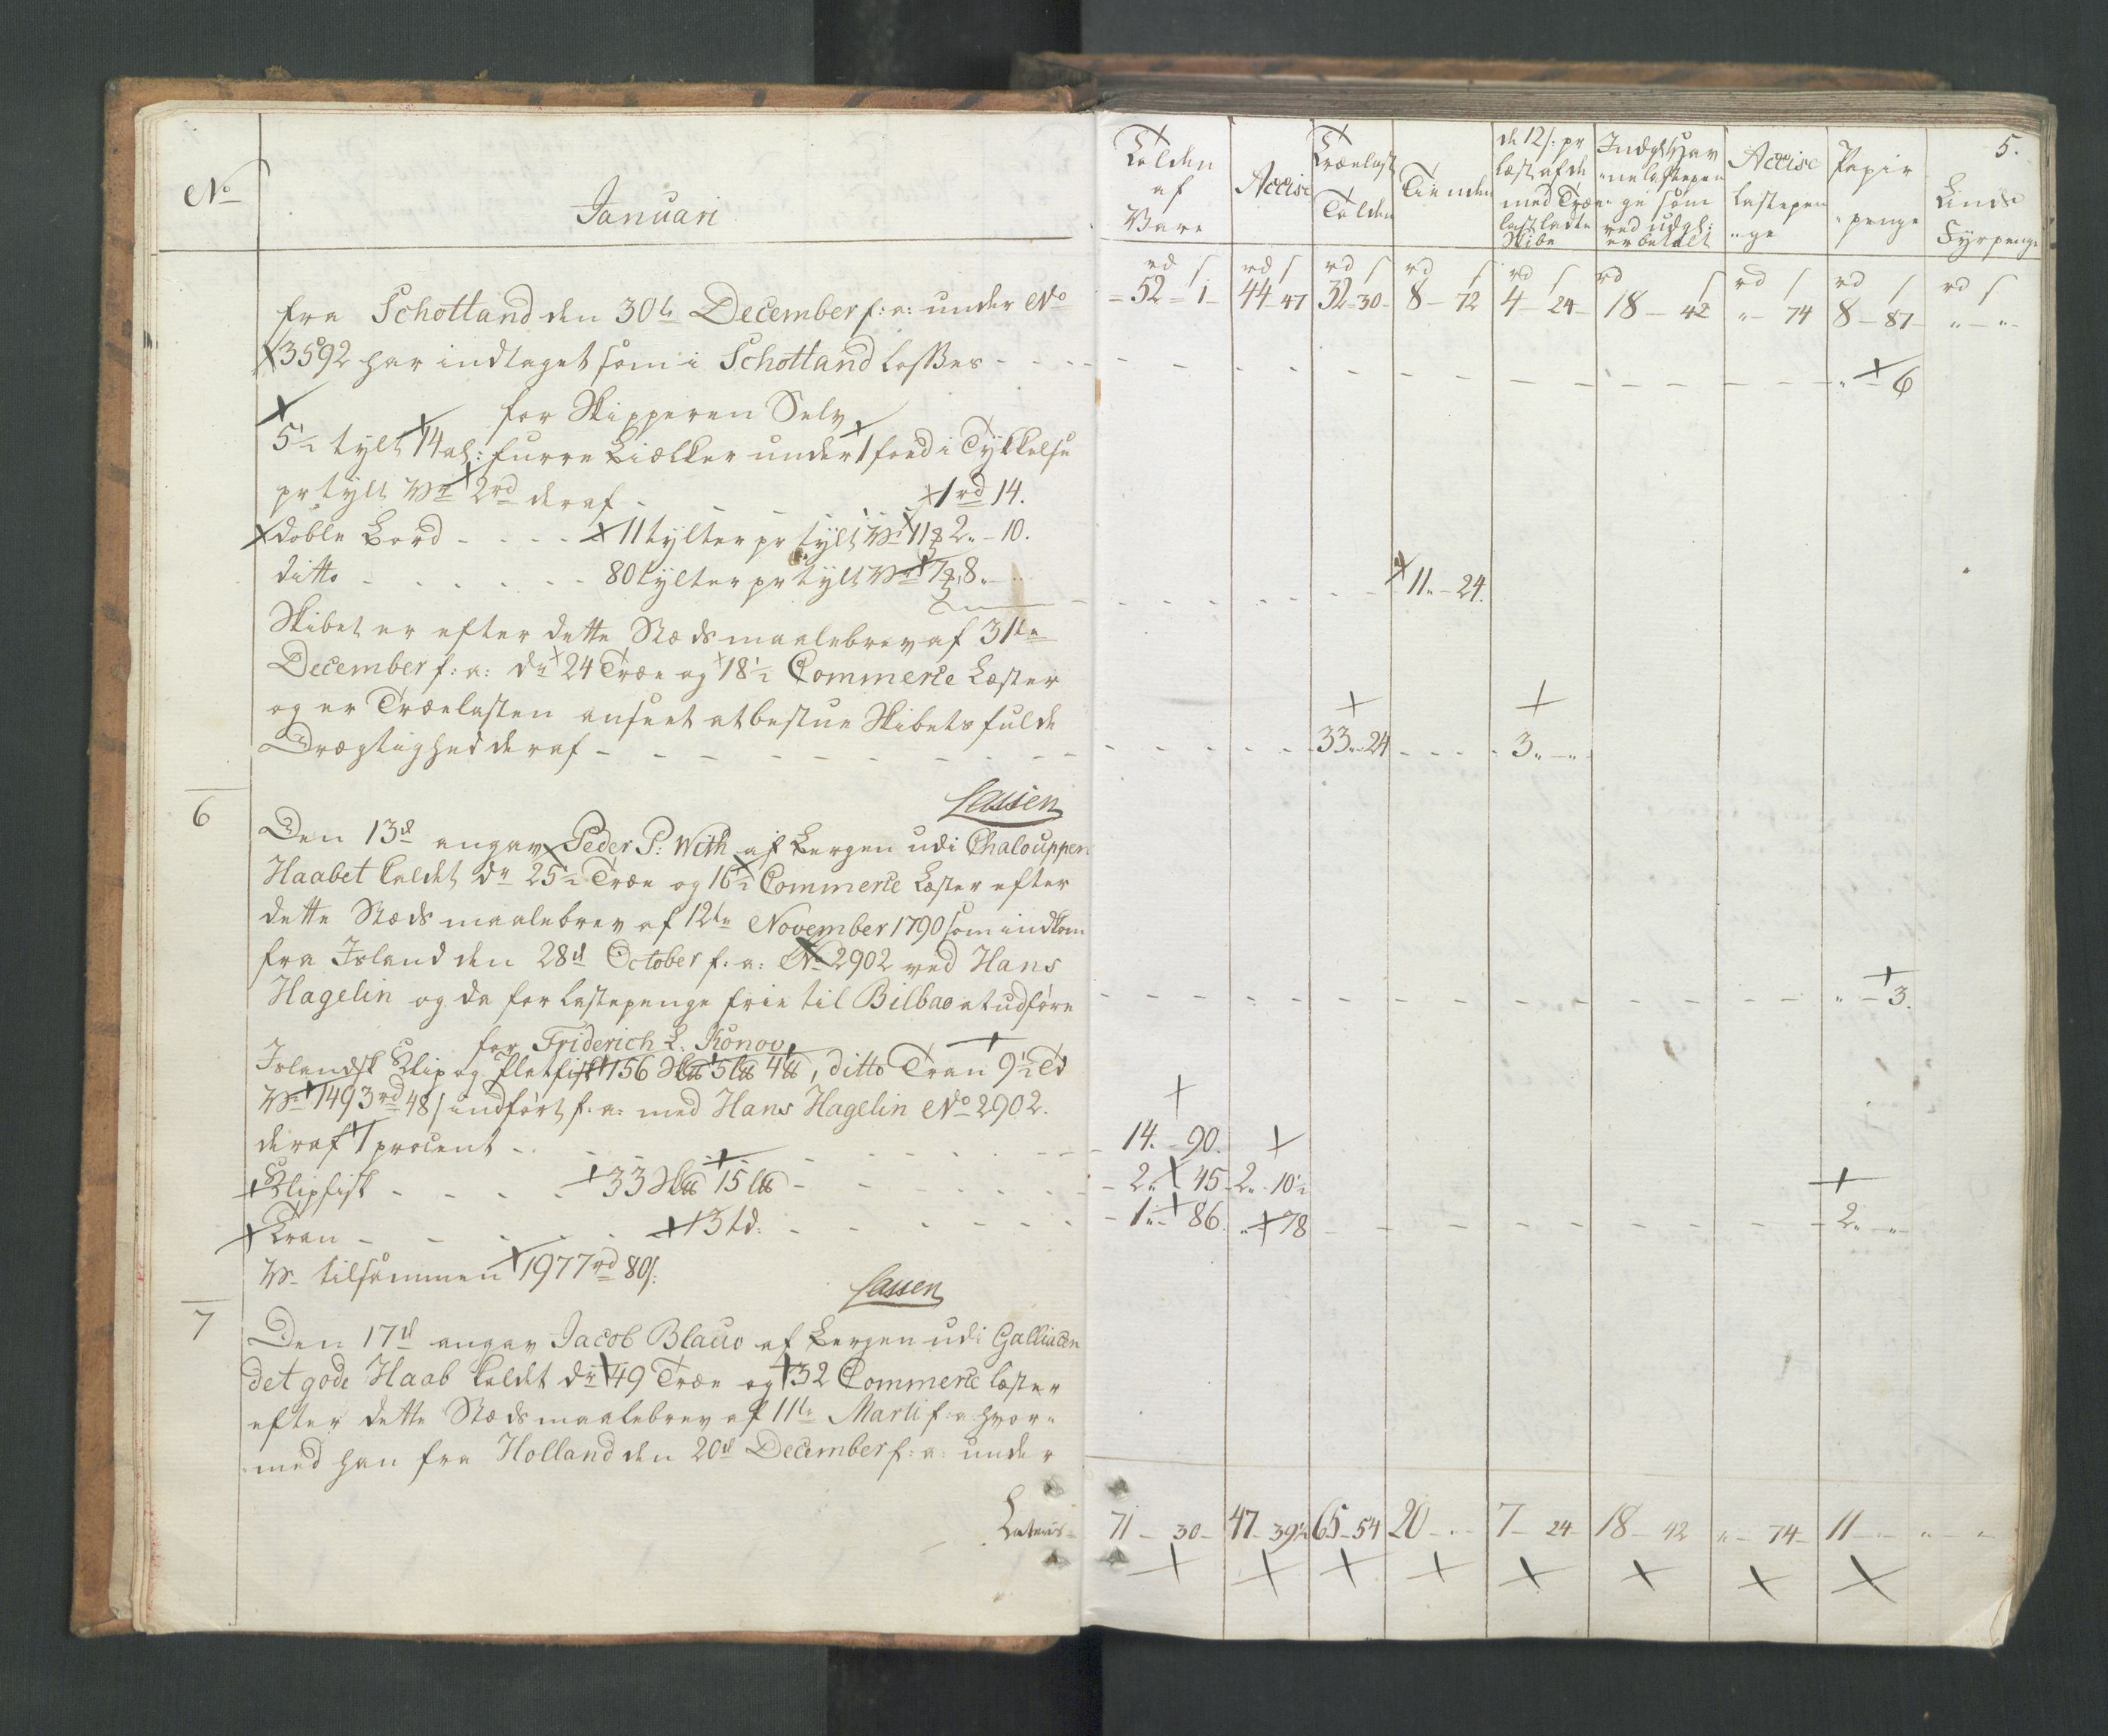 No
Januari
fra Schottland den 30te December f: a: under No
3592 har indtaget som i Schottland losses
for Skipperen Selv
5½ tylt 14 al: furre Biælker under 1 food i Tykkelse
pr tylt Vr 2rd deraf - 1rd 14.
doble Bord - - - 11 tylter pr tylt Vr 11 2„ - 10.
ditto - - - 80 tylter pr tylt Vr 7 8„ -
Skibet er efter dette Stæds maalebrev af 31te
December f: a: dr 24 Træe og 18½ Commerce Læster
og er Trælasten anseet at bestue Skibets fulde
Drægtighed deraf
Lassen
6
Den 13de angav Peder P: With af Bergen udi Chalouppen
Haabet kaldet dr 25½ Træe og 16½ Commerce Læster efter
dette Stæds maalebrev af 12te November 1790 som indkom
fra Island den 28de October f: a: No 2902 ved Hans
Hagelin og da for lastepenge frie til Bilbao at udføre
for Friderich L. Konow
Islandsk Klip og Platfisk 156 5 4 , ditto Tran 9½ Td
Vr 1493rd 48 s indført f: a: med Hans Hagelin No 2902.
deraf 1 procent
Klipfisk - - - 33 15
Tran - - - 13 td:
Vr tilsammen 1977rd 80 s:
Lassen
7
Den 17de angav Jacob Blauw af Bergen udi Galliacen
det gode Haab kaldet dr 49 Træe og 32 Commerce læster
efter dette Stæds maalebrev af 11te Marti f: a: hvor-
med han fra Holland den 20de December f: a: under
Lateris
5.
Tolden af Vare | Accise | Trælast Tolden | Tienden | de 12 s: pr læst af de med Træe last ladte Skibe | Indgl: Havnelastepenge som ved udgl: er betalt | Accise lastepenge | Papir penge | Linds Fyrpenge
rd s | rd s | rd s | rd s | rd s | rd s | rd s | rd s | rd s
52 - 1 | 44 47 | 32 - 30 | 8 - 72 | 4 - 24 | 18 - 42 | „ - 74 | 8 - 87 | „ - „
„ - 6
11„ - 24.
33„ - 24 | 3„ - „
„ - 3.
14. - 90.
2„ 45 | 2„ - 10½
1„ - 86. | „ - 78 | 2„ - „
71 - 30 | 47 - 39½ | 65 - 54 | 20 - „ | 7 - 24 | 18 - 42 | „ - 74 | 11 - „ | „ - „